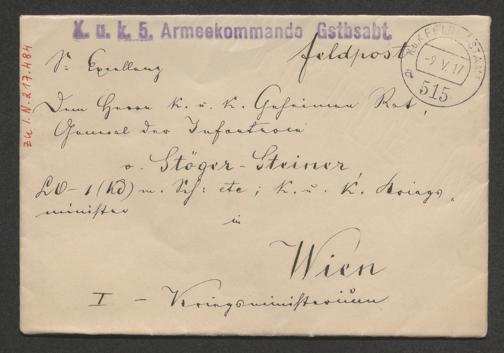 K. u. k. 5. Armeekommando Gstbsabt.
Feldpost
K.u.K. FELDPOSTAMT
-9. V. 17
a
515
Sr Exzellenz
Dem Herrn K. u. K. Geheimen Rat,
General der Infanterie
v. Stöger-Steiner,
LO-1 (Kd) m. Sch: etc; K. u. K. Kriegs-
minister
in
Wien
I - Kriegsministerium
zu I.N. 217.484